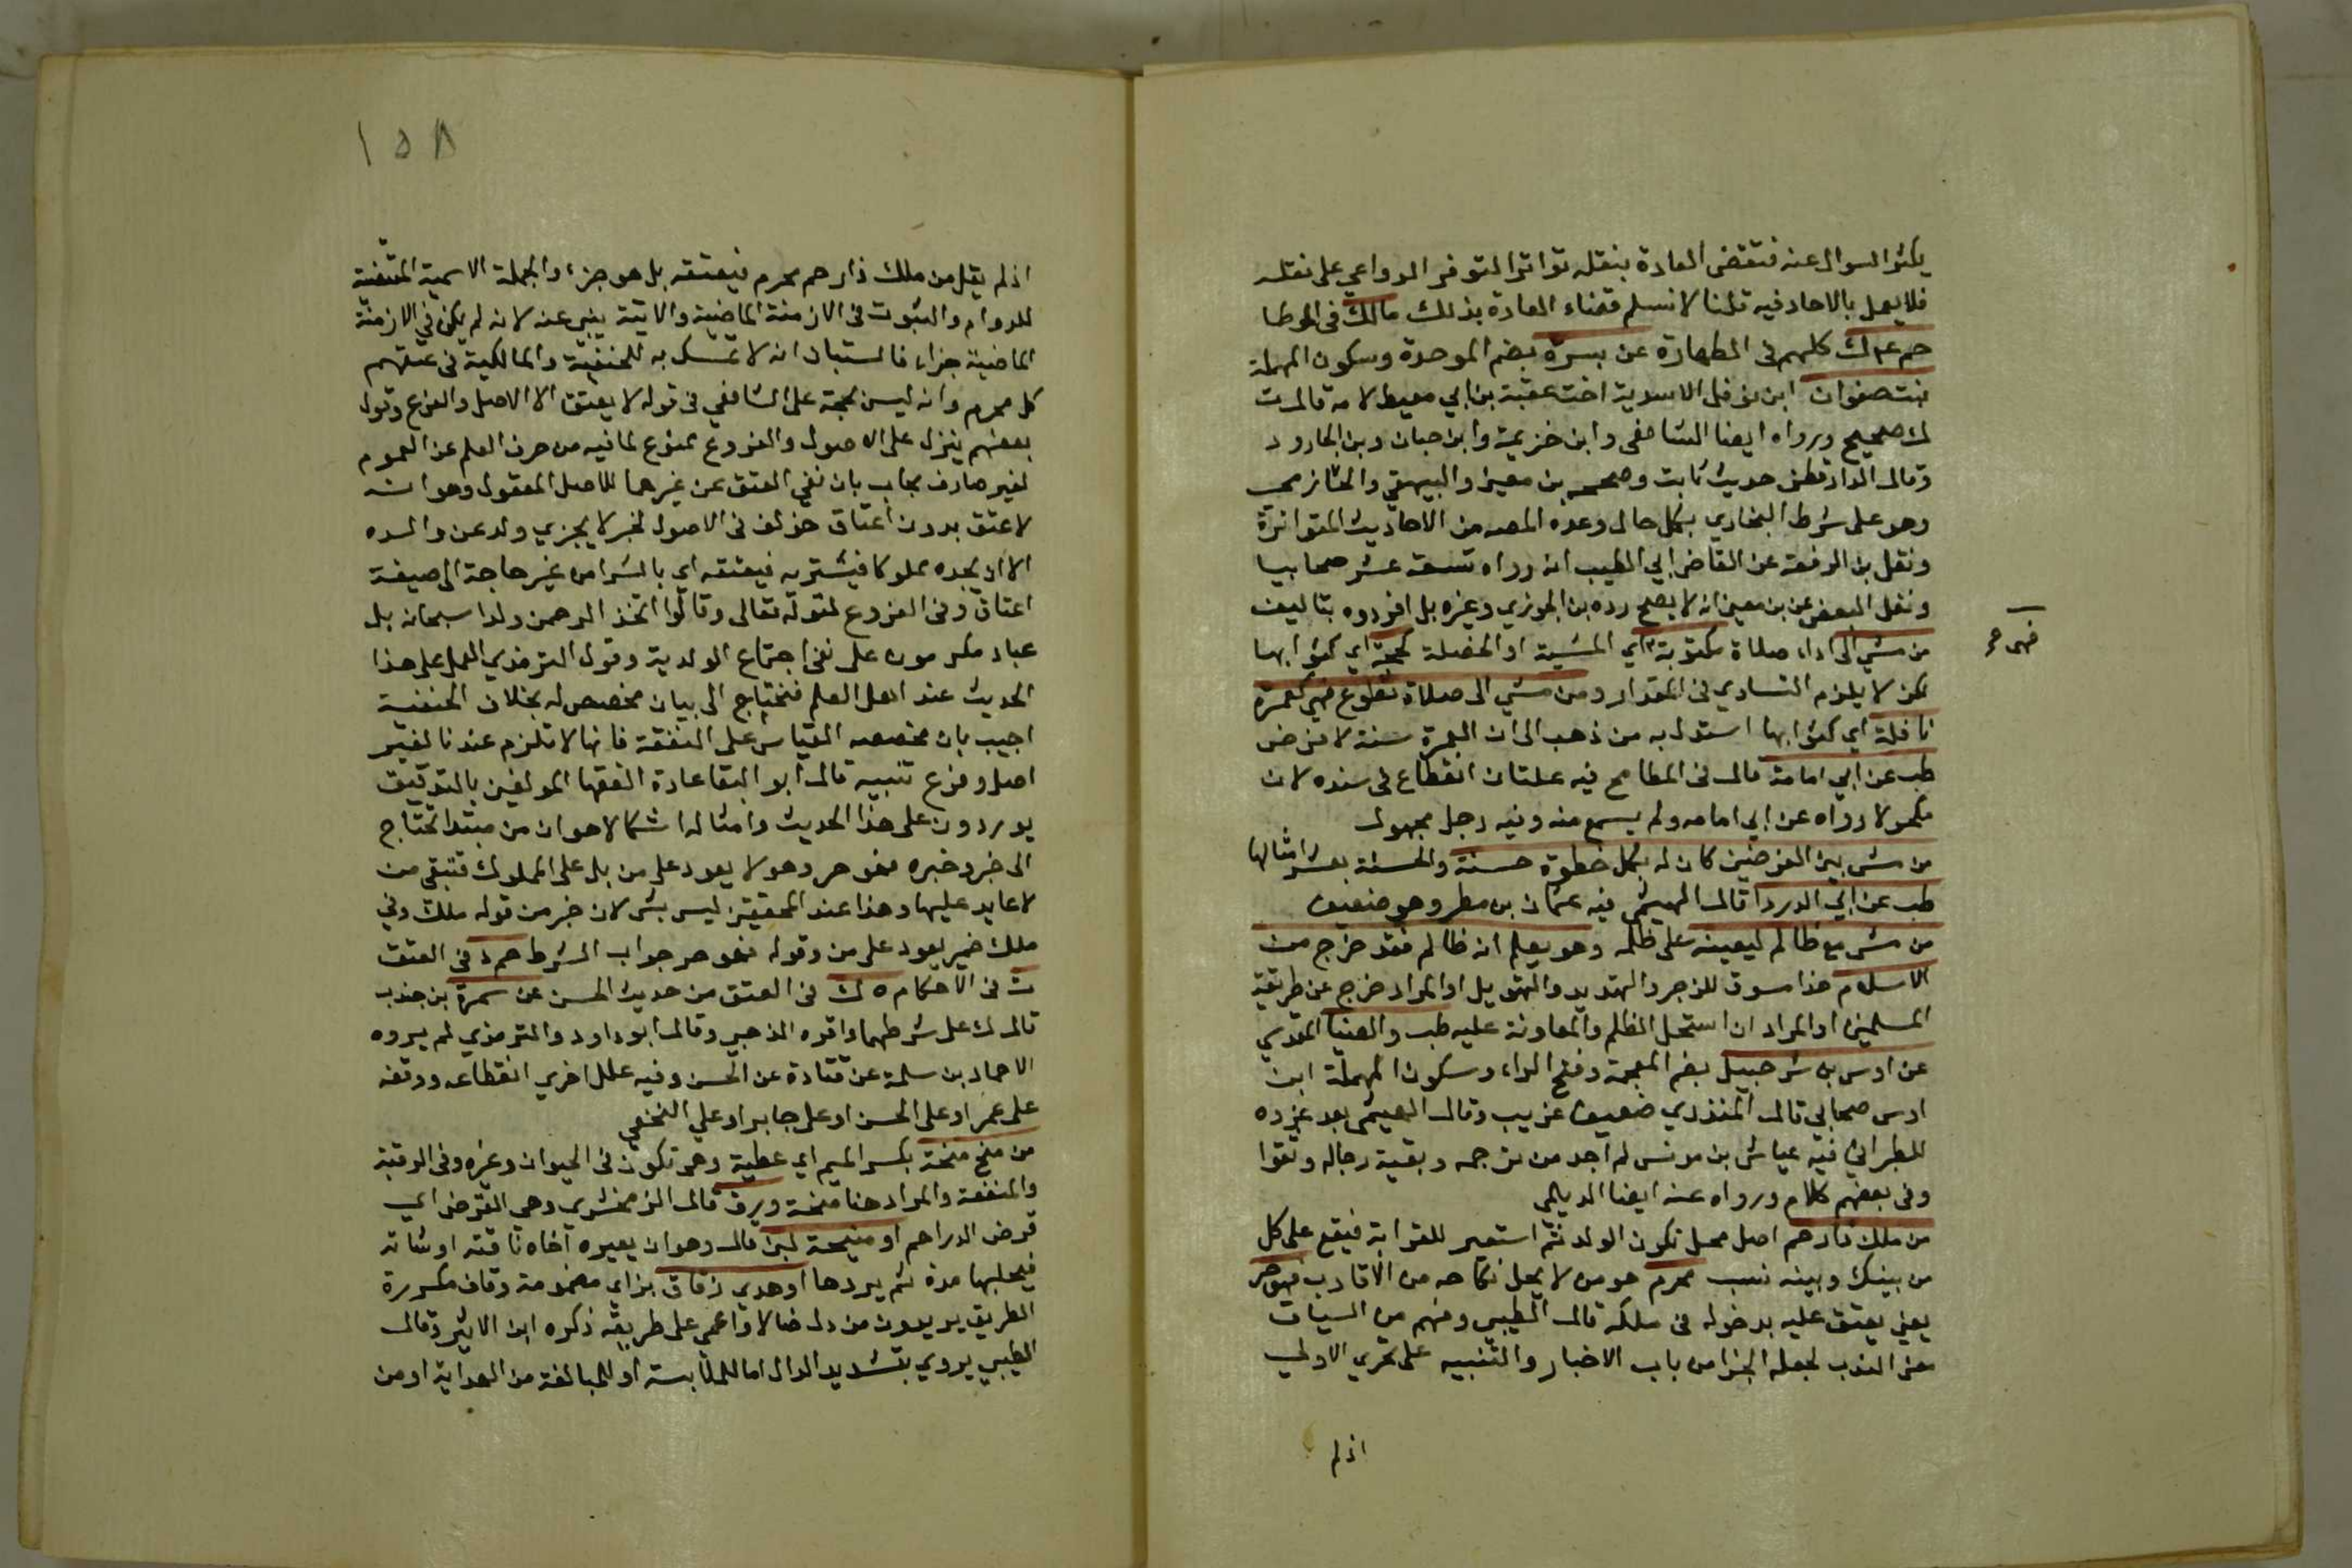 يكثر السوال عنه فتقضى العادة بنقله تواترا لتوفر الدواعي على نقله
فلا يعمل بالاحاد فيه قلنا لا نسلم قضاء العادة بذلك مالك في الموطا
حم ع ك كلهم في الطهارة عن بسرة بضم الموحدة وسكون المهملة
بنت صفوان ابن نوفل الاسدية اخت عقبة بن ابي معيط لامه قال ت
ك صحيح ورواه ايضا الشافعي وابن خزيمة وابن حبان وبن الجارود
وقال الدارقطني حديث ثابت وصححه بن معين والبيهقي والحازمي
وهو على شرط البخاري بكل حال وعده المص من الاحاديث المتواترة
ونقل بن الرفعة عن القاضي ابي الطيب انه رواه تسعة عشر صحابيا
ونقل البعض عن بن معين انه لا يصح رده بن الجوزي وغيره بل افردوه بتاليف
من مشى الى اداء صلاة مكتوبة اي المشية او الخصلة كحجة اي كثوابها
لكن لا يلزم التساوي في المقدار ومن مشي الى صلاة تطوع فهي كعمرة
نافلة اي كثوابها استدل به من ذهب الى ان العمرة سنة لا فرض
طب عن ابي امامة قال في المطامح فيه علتان انقطاع في سنده لان
مكحولا رواه عن ابي امامه ولم يسمع منه وفيه رجل مجهول
من مشى بين الغرضين كان له بكل خطوة حسنة والحسنة بعشر امثالها
طب عن ابي الدردا قال الهيثمي فيه عثمان بن مطر وهو ضعيف
من مشى مع ظالم ليعينه على ظلمه وهو يعلم انه ظالم فقد خرج من
الاسلام هذا مسوق للزجر والتهديد والتهويل او المراد خرج عن طريقة
المسلمين او المراد ان استحل الظلم والمعاونة عليه طب والضيا المقدسي
عن اوس بن شرحبيل بضم المعجمة وفتح الراء وسكون المهملة ابن
اوس صحابي قال المنذري ضعيف غريب وقال الهيثمي بعد عزوه
للطبراني فيه عياش بن مونس لم اجد من ترجمه وبقية رجاله وثقوا
وفي بعضهم كلام ورواه عنه ايضا الديلمي
من ملك ذا رحم اصل محل تكون الولد ثم استعير للقرابة فيقع على كل
من بينك وبينه نسب محرم هو من لا يحل نكاحه من الاقارب فهو حر
يعني يعتق عليه بدخوله في ملكه قال الطيبي وفهم من السياق
معنى الندب لجعله الجزا من باب الاخبار والتنبيه على تحري الاولي
اذ لم
١٥٨
اذ لم يقل من ملك ذا رحم محرم فيعتقه بل هو جزء والجملة الاسمية المقتضية
للدوام والثبوت في الازمنة الماضية والاتية ينبي عنه لانه لم يكن في الازمنة
الماضية جزاء فاستبان انه لا تمسك به للحنفية والمالكية في عتقهم
كل محرم وانه ليس بحجة على الشافعي في قوله لا يعتق الا الاصل والفرع وقول
بعضهم ينزل على الاصول والفروع ممنوع لما فيه من صرف العلم عن العموم
لغير صارف مجاب بان نفي العتق عن غيرهما للاصل المعقول وهو انه
لا عتق بدون اعتاق خولف في الاصول لخبر لا يجزي ولد عن والده
الا ان يجده مملوكا فيشتريه فيعتقه اي بالشرا من غير حاجة الى صيغة
اعتاق وفي الفروع لقوله تعالى وقالوا اتخذ الرحمن ولدا سبحانه بل
عباد مكرمون على نفي اجتماع الولدية وقول الترمذي العمل على هذا
الحديث عند اهل العلم فنحتاج الى بيان مخصص له بخلاف الحنفية
اجيب بان مخصصه القياس على النفقة فانها لا تلزم عندنا لغير
اصل وفرع تنبيه قال ابو البقا عادة الفقها المولعين بالتدقيق
يوردون على هذا الحديث وامثاله اشكالا هو ان من مبتدا تحتاج
الى خبر وخبره فهو حر وهو لا يعود على من بل على المملوك فتبقى من
لا عايد عليها وهذا عند المحققين ليس بشي لان خبر من قوله ملك وفي
ملك ضمير يعود على من وقوله فهو حر جواب الشرط حم د في العتق
ت في الاحكام ه ك في العتق من حديث الحسن عن سمرة بن جندب
قال ك على شرطهما واقره الذهبي وقال ابو داود والترمذي لم يروه
الا حماد بن سلمة عن قتادة عن الحسن وفيه علل اخري انقطاعه ووقفه
على عمر او على الحسن او على جابر او علي النخعي
من منح منحة بكسر الميم اي عطية وهي تكون في الحيوان وغيره وفي الرقبة
والمنفعة والمراد هنا منحة ورق قال الزمخشري وهي القرض اي
قرض الدراهم او منيحة لبن قال وهو ان يعيره اخاه ناقته او شاته
فيحلبها مدة ثم يردها او هدي زقاق بزاي مضمومة وقاف مكررة
الطريق يريدون من دل ضالا او اعمي على طريقه ذكره ابن الاثير وقال
الطيبي يروي بتشديد الدال اما للملابسة او للمبالغة من الهداية او من